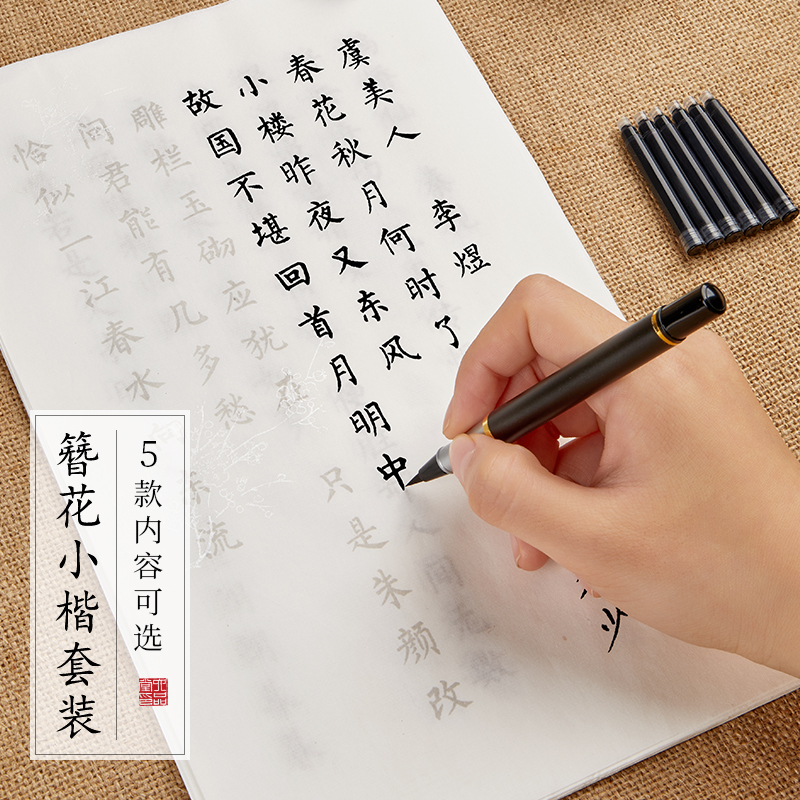 虞美人 李煜
春花秋月何时了 少
小楼昨夜又东风
故国不堪回首月明中
雕栏玉砌应犹在 只是朱颜改
问君能有几多愁
恰似一江春水 东流
5款内容可选
簪花小楷套装